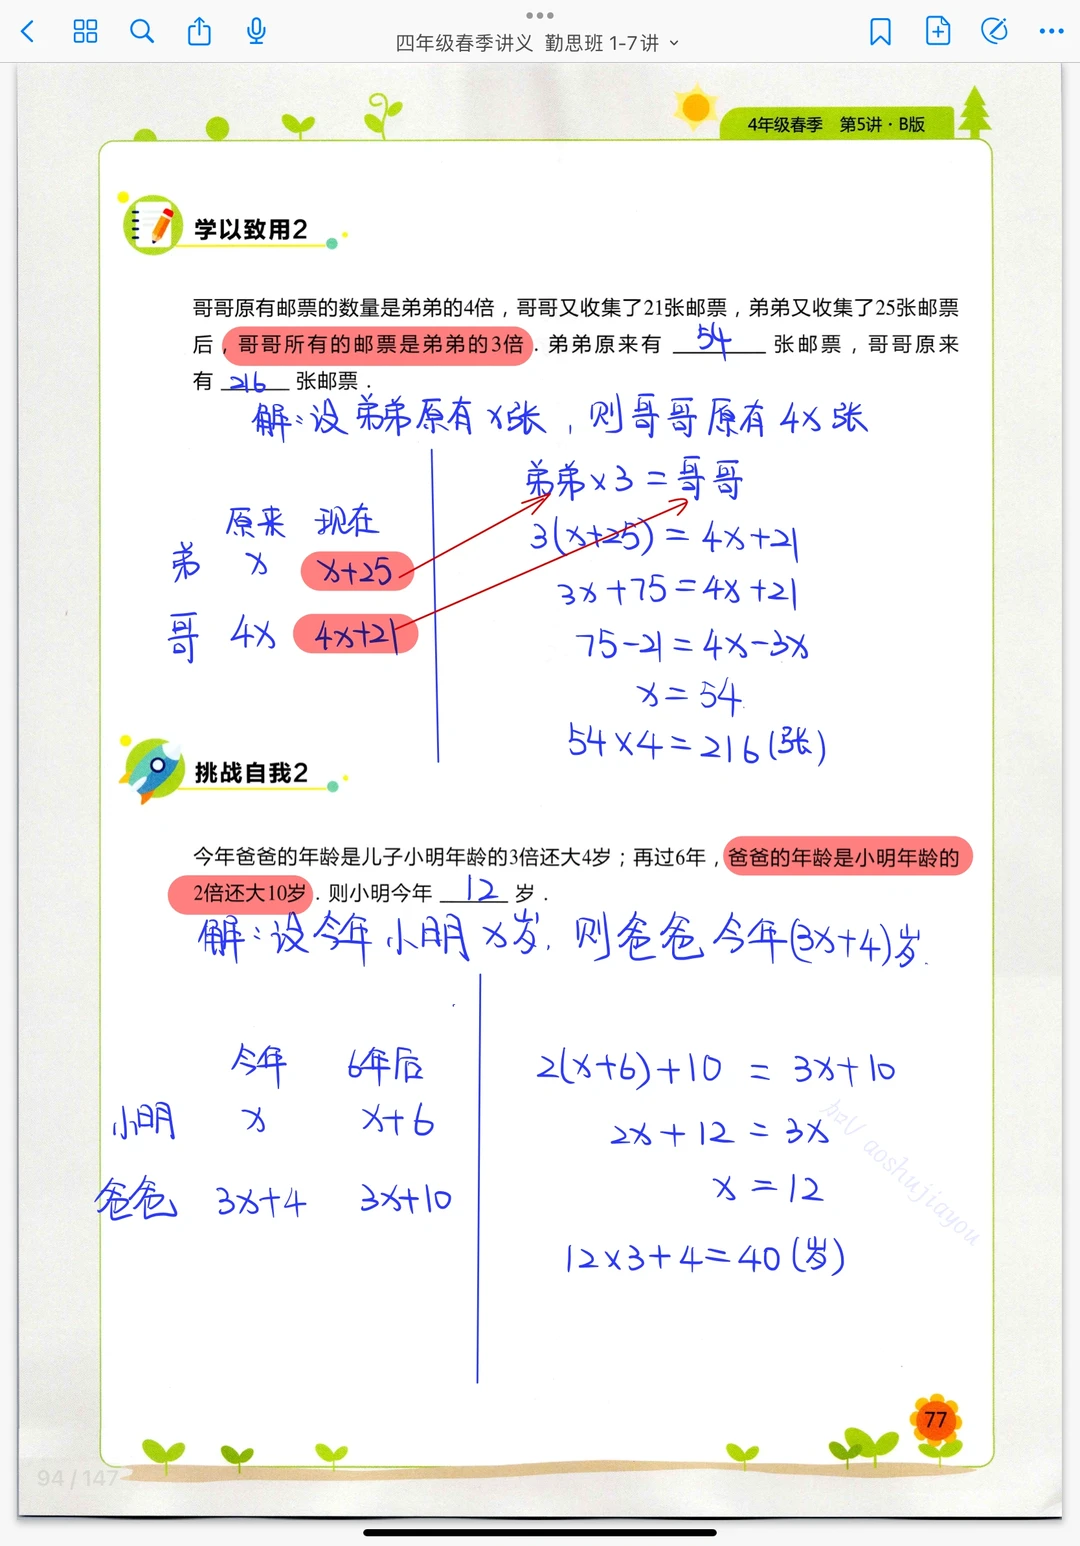 四年级春季讲义 勤思班 1-7讲
4年级春季 第5讲·B版
学以致用2
哥哥原有邮票的数量是弟弟的4倍，哥哥又收集了21张邮票，弟弟又收集了25张邮票
后，哥哥所有的邮票是弟弟的3倍．弟弟原来有 54 张邮票，哥哥原来
有 216 张邮票．
解：设弟弟原有x张，则哥哥原有4x张
弟弟×3=哥哥
原来 现在
弟 x x+25
哥 4x 4x+21
3(x+25)=4x+21
3x+75=4x+21
75-21=4x-3x
x=54
54×4=216(张)
挑战自我2
今年爸爸的年龄是儿子小明年龄的3倍还大4岁；再过6年，爸爸的年龄是小明年龄的
2倍还大10岁．则小明今年 12 岁．
解：设今年小明x岁，则爸爸今年(3x+4)岁.
今年 6年后
小明 x x+6
爸爸 3x+4 3x+10
2(x+6)+10=3x+10
2x+12=3x
x=12
12×3+4=40(岁)
aoshujiayou
77
94/147